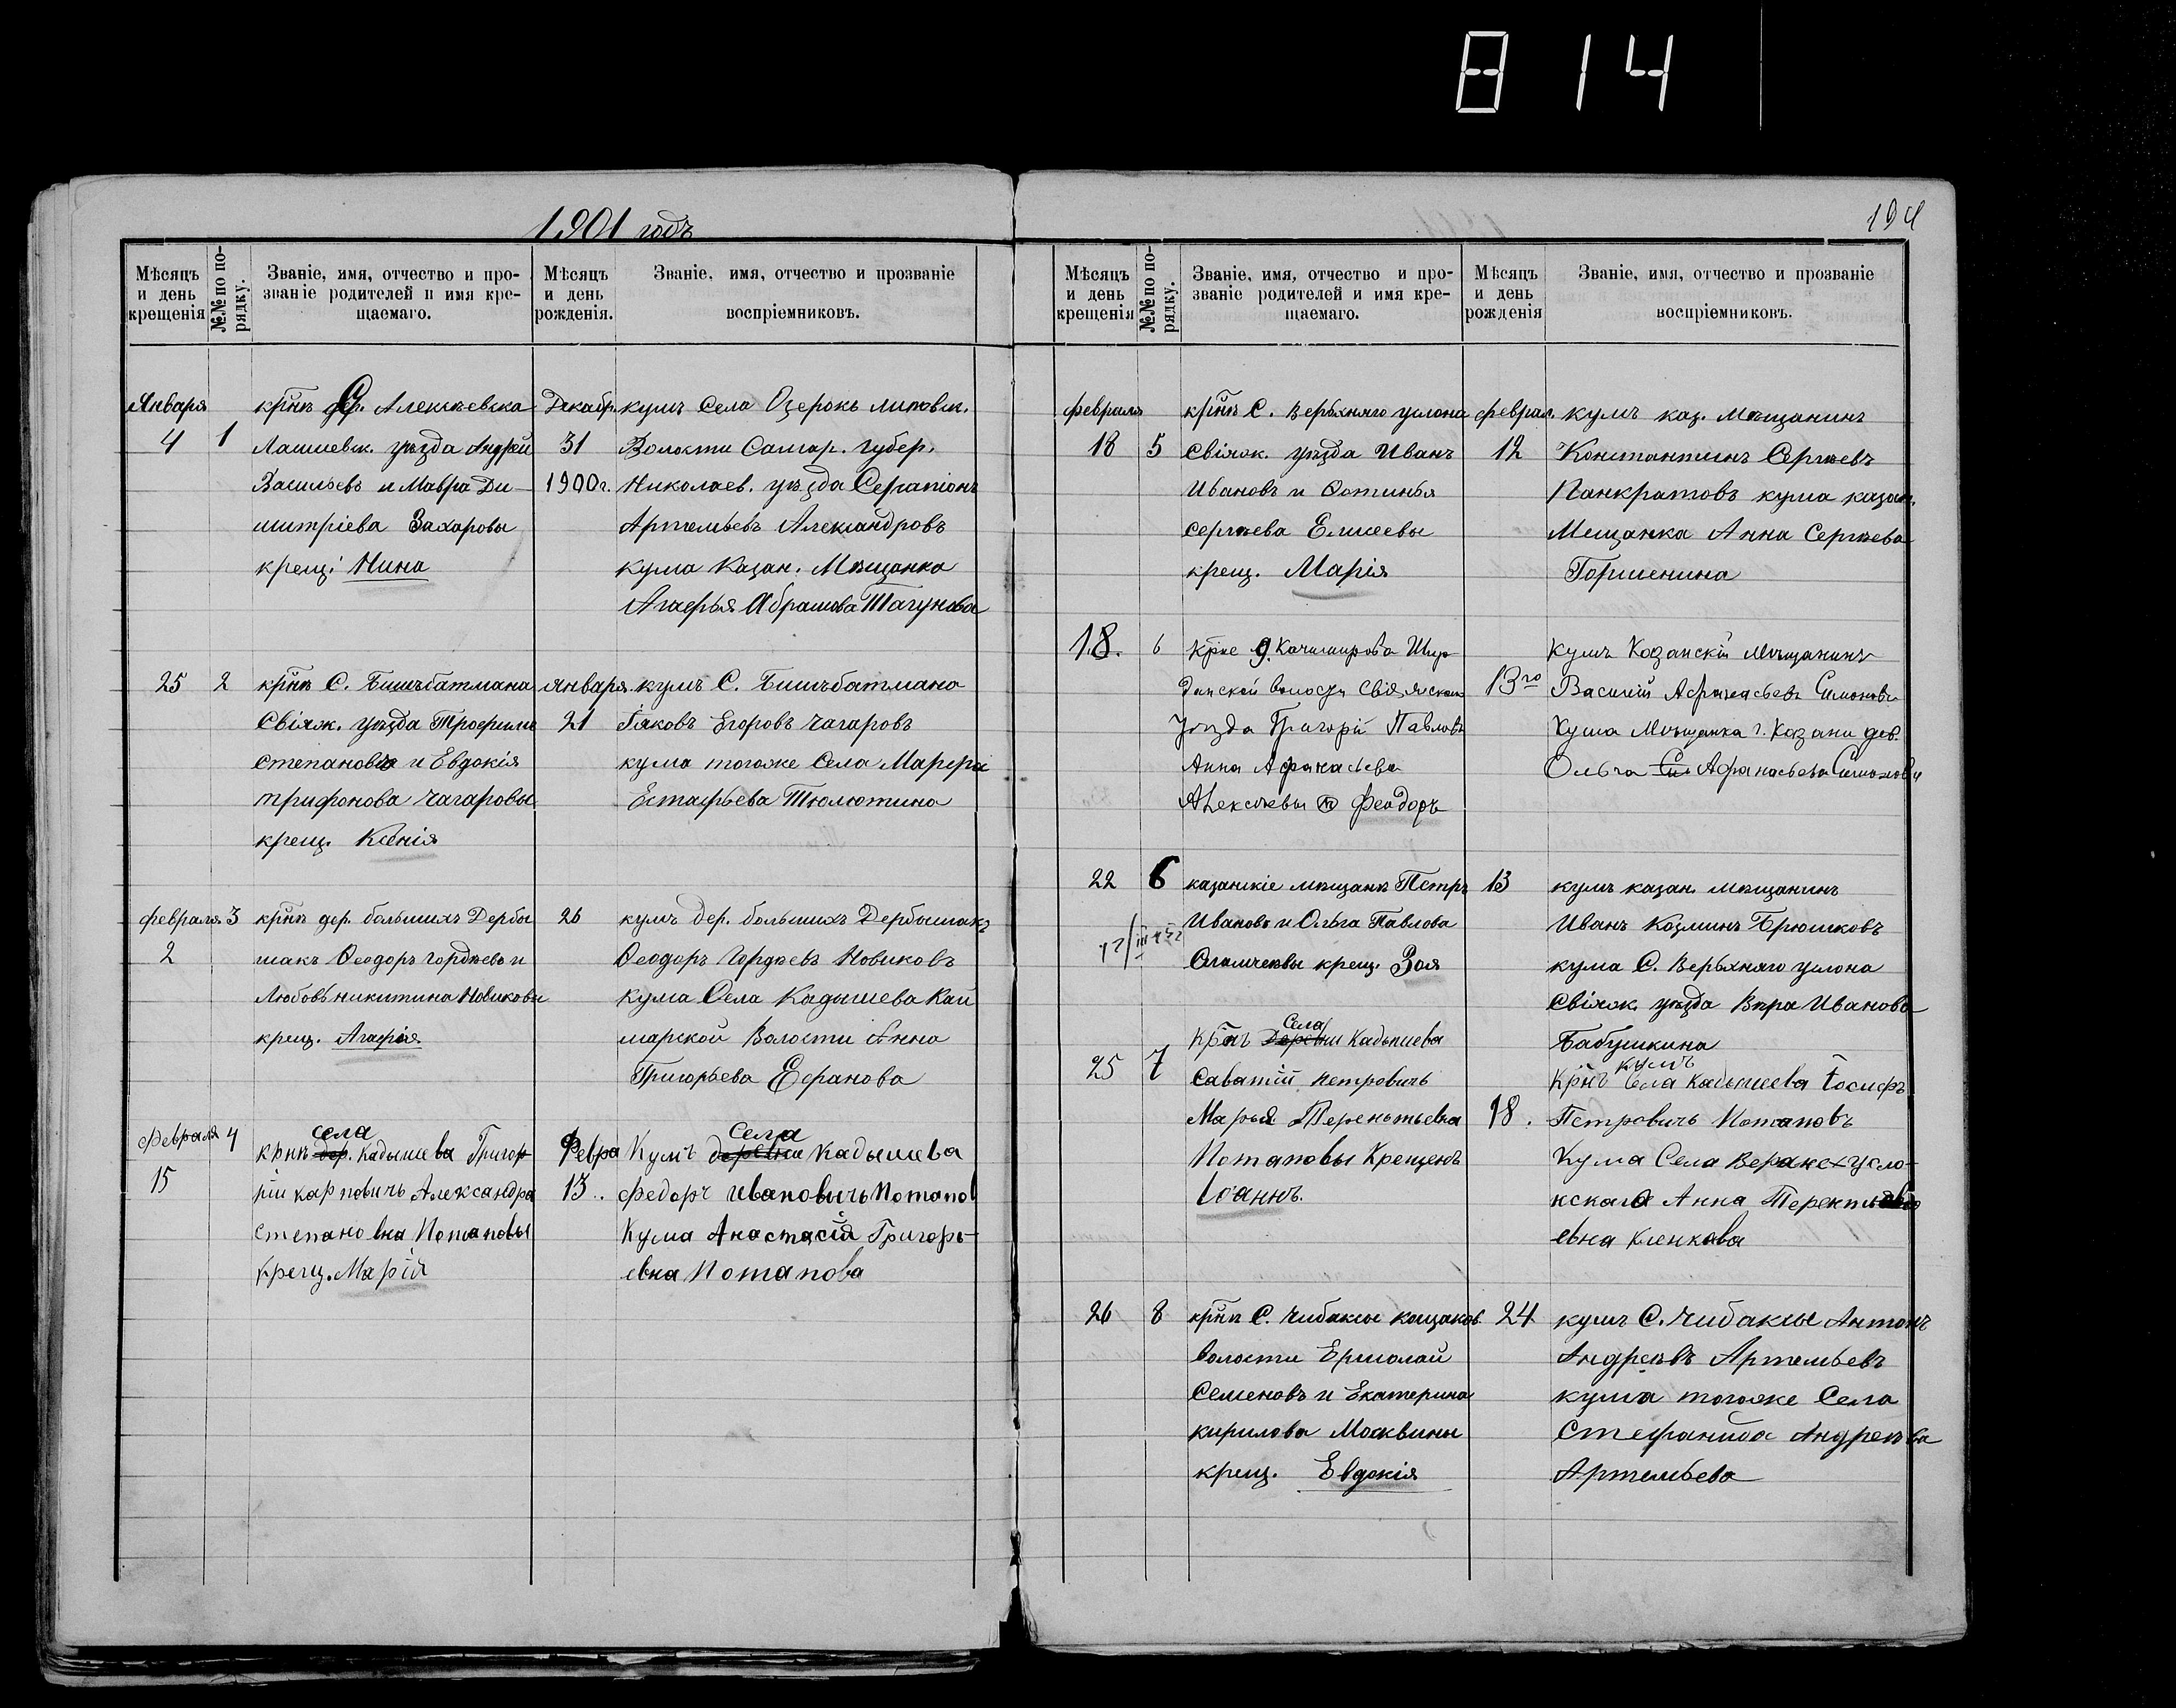 814
1901 годъ
Мѣсяцъ и день крещенія
№№ по порядку.
Званіе, имя, отчество и прозваніе родителей и имя крещаемаго.
Мѣсяцъ и день рожденія.
Званіе, имя, отчество и прозваніе воспріемниковъ.
Января
4
1
крн̃ѣ С. Алексѣевска
Лаишевск. уѣзда Андрей
Васильевъ и Мавра Ди-
митріева Захаровы
крещ: Нина
Декабр.
31
1900 г.
кумъ Села Озерокъ Липовск.
Волости Самар. Губер.
Николаев. уѣзда Серапіонъ
Артемьевъ Александровъ
кума Казан. Мѣщанка
Агафья Абрамова Тагунова
25
2
крн̃ѣ С. Бишъбатмана
Свіяж. уѣзда Трофимъ
Степановъ и Евдокія
Трифонова Чагаровы
крещ. Ксенія
Января
21
кумъ С. Бишъбатмана
Іяковъ Егоровъ Чагаровъ
кума тогоже Села Марфа
Естафьева Тюлютина
февраля
2
3
крн̃ѣ дер. большихъ Дербы
шакъ Ѳеодоръ Гордѣевъ и
Любовь никитина Новиковы
крещ. Агафія
26
кумъ дер. большихъ Дербышакъ
Ѳеодоръ Гордѣевъ Новиковъ
кума Села Кадышева Кай
марской Волости Анна
Григорьева Ефранова
Февраля
15
4
села
крнѣ дер. Кадышева Григор-
рій карповичъ Александра
степановна Потаповы
Крещ. Марія
Февра
13.
Села
Кумъ деревни Кадышева
федоръ ивановичъ Потапов
Кума Анастасія Григорь-
евна Потапова
194
Мѣсяцъ и день крещенія
№№ по порядку.
Званіе, имя, отчество и прозваніе родителей и имя крещаемаго.
Мѣсяцъ и день рожденія
Званіе, имя, отчество и прозваніе воспріемниковъ.
февраля
18
5
крн̃ѣ С. Верьхняго услона
Свіяж. уѣзда Иванъ
Ивановъ и Ѳотинья
Сергѣева Елисеевы
крещ. Марія
феврал.
12
кумъ каз. Мѣщанинъ
Константинъ Сергѣевъ
Панкратовъ кума казан.
Мещанка Анна Сергѣева
Горшенина
18.
6
Крне д. Качимирова Шир
данской волости Свіяжскаго
Уѣзда Григорій Павловъ
Анна Афанасьева
Алексѣевы Феодоръ
13го
Кумъ Козанскій мѣщанинъ
Василій Афанасьевъ Симоновъ
Кума Мѣщанка г. Казани дев.
Ольга Афанасьева Симонова
22
6
казанскіе мѣщане Петръ
Ивановъ и Ольга Павлова
крещ. Зоя
13
кумъ казан. мѣщанинъ
Иванъ Козминъ Брюшковъ
кума С. Верьхняго услона
Свіяж. уѣзда Вѣра Иванова
Бабушкина
25
7
Села
Крн̃ъ Деревни Кадышева
Саватій петровичъ
Марья Терентьевна
Потаповы Крещенъ
Іоаннъ.
18.
кумъ
Крнъ Села Кадышеева Іосифъ
Петровичъ Потаповъ
Кума Села Верхнехусло-
нскаго Анна Терент
евна Кленкова
26
8
крн̃ѣ С. Чибаксы кощаков.
волости Ермолай
Семеновъ и Екатерина
кирилова Москвины
крещ. Евдокія
24
кумъ С. Чибаксы Антонъ
Андреевъ Артемьевъ
кума тогоже Села
Стефанида Андреева
Артемьева